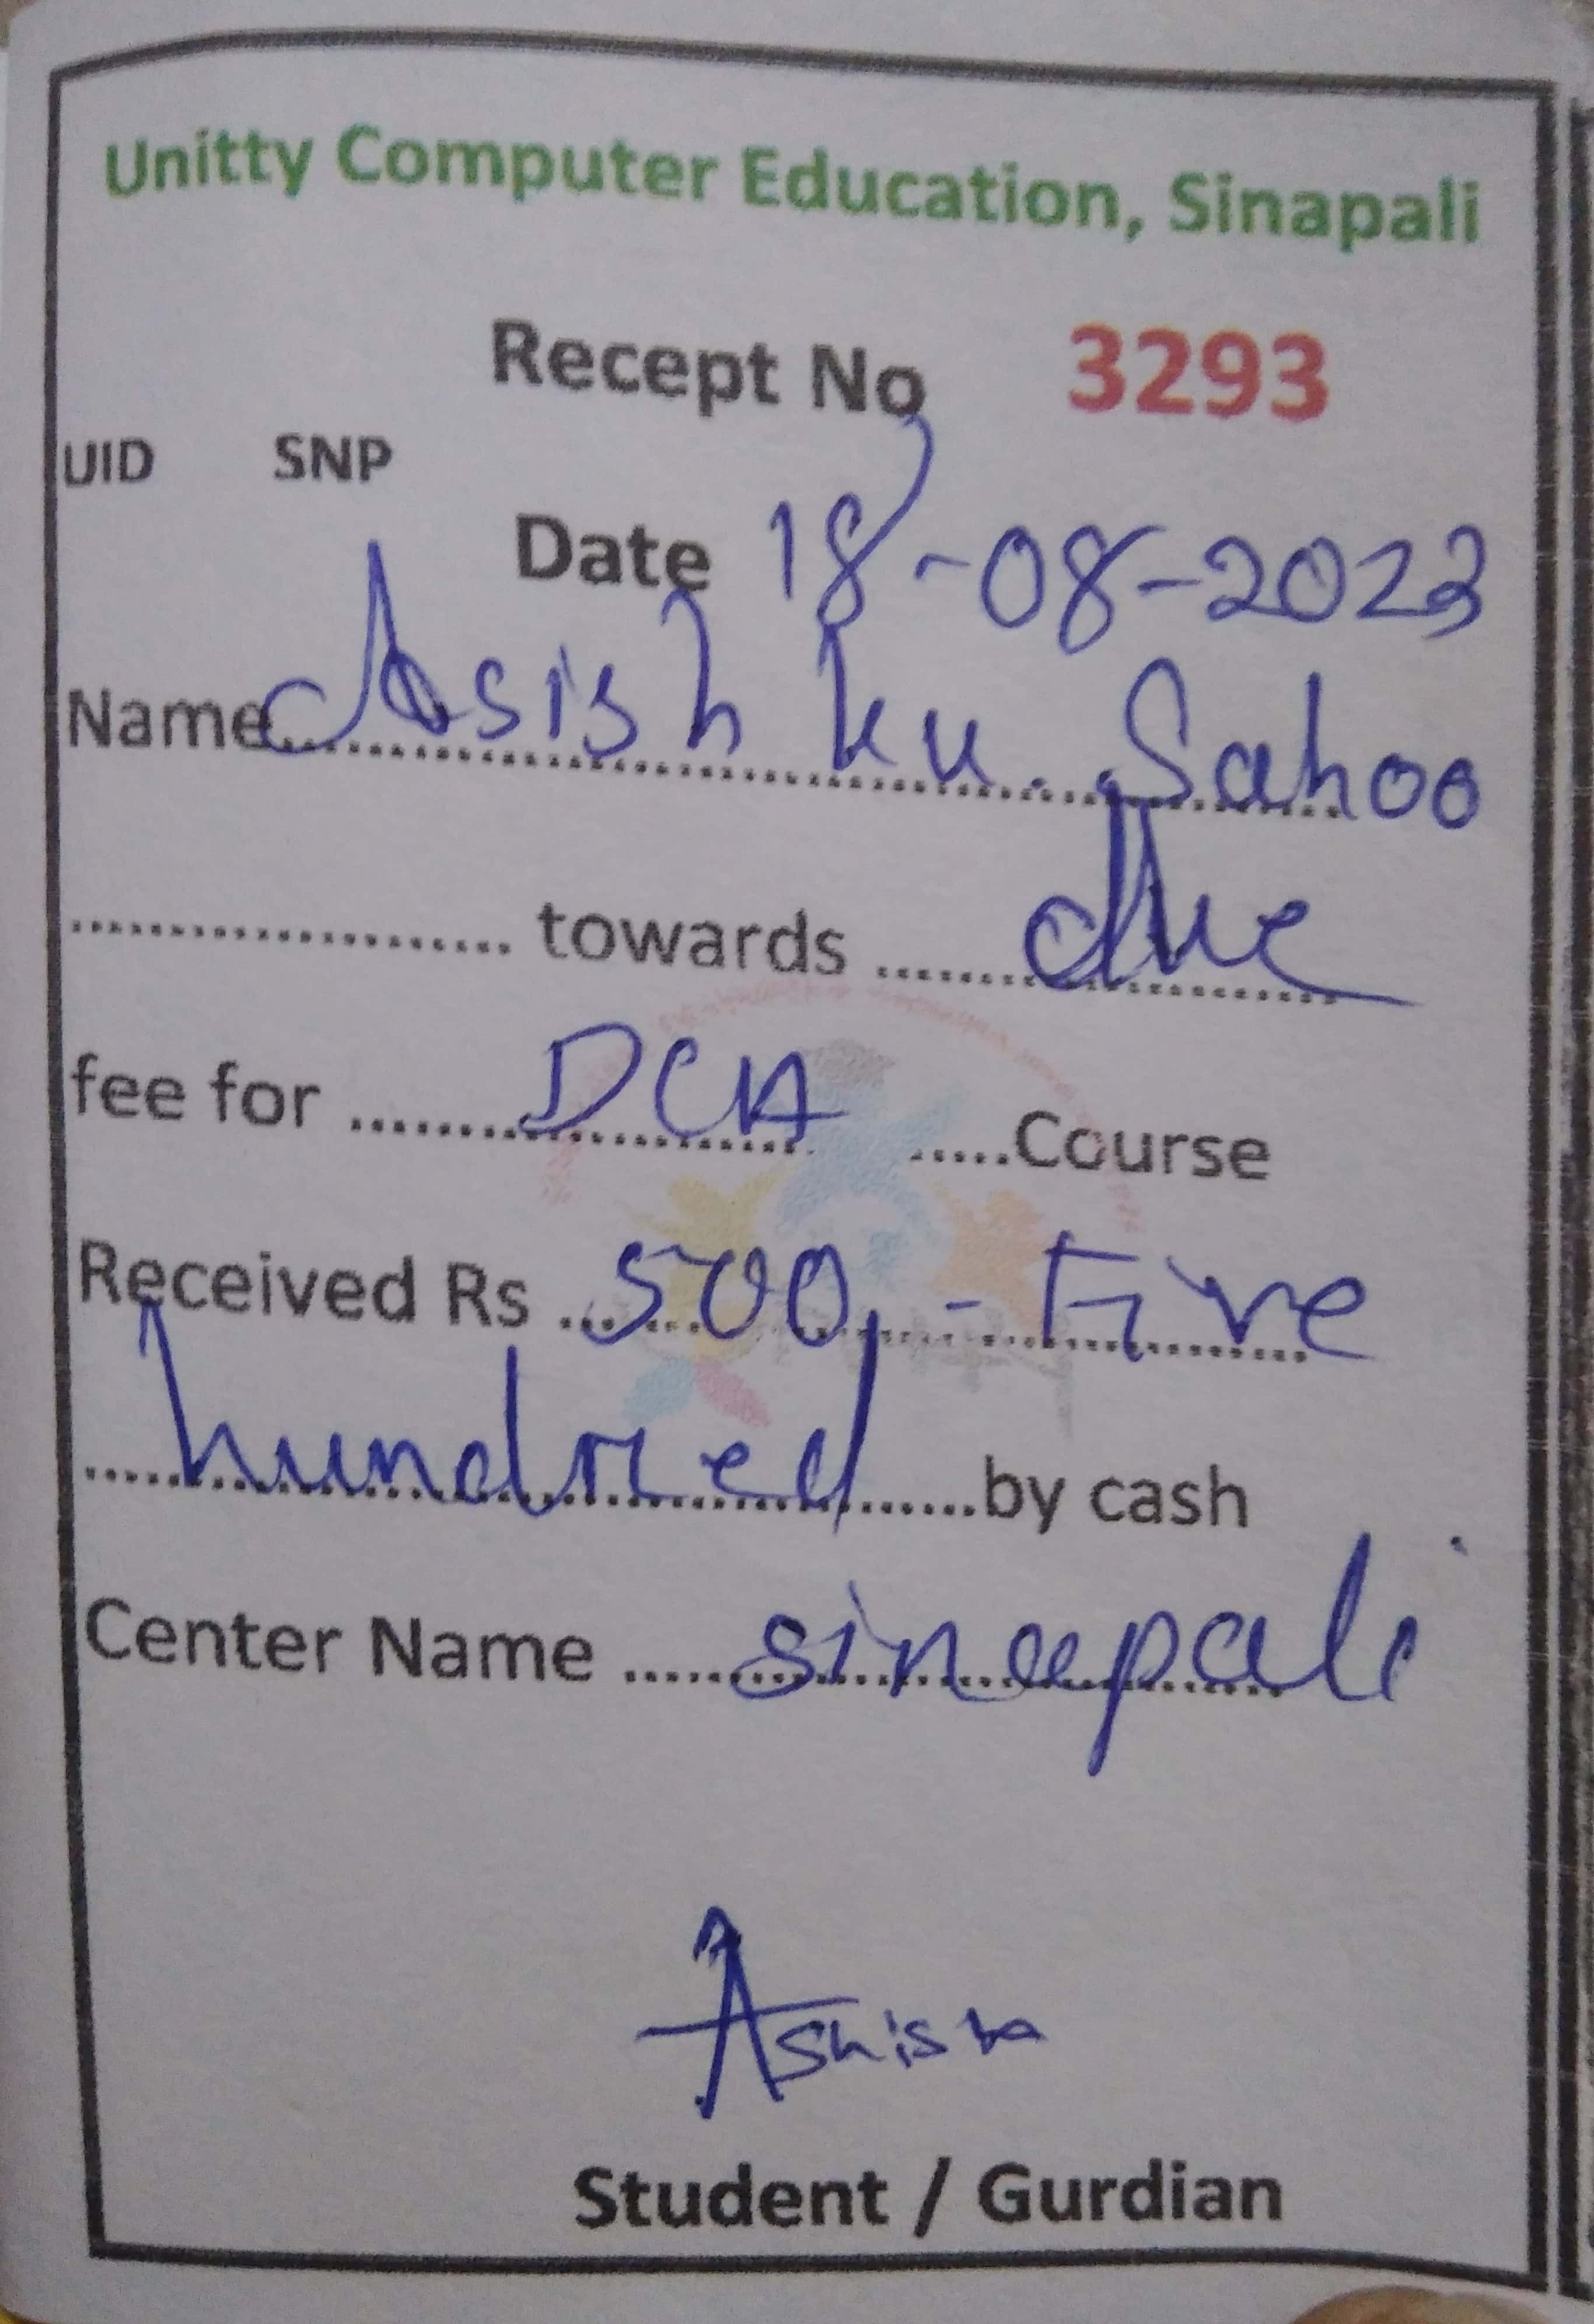 Unitty Computer Education, Sinapali
Recept No 3293
UID SNP
Date 18-08-2023
Name Asish ku. Sahoo
.......................... towards ........ due
fee for ........ DCA .....Course
Received Rs ... 500/- Five
..... hundred .......by cash
Center Name ...... sinapali
Ashish
Student / Gurdian